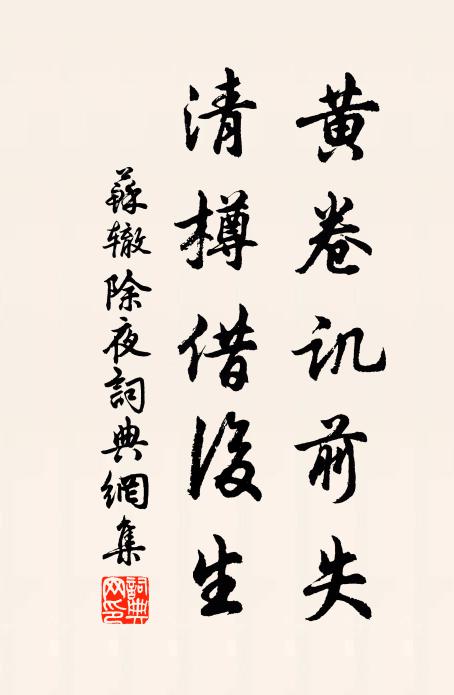 黄卷讥前失
清樽借後生
蘇辙除夜詞典網集
詞典
网印